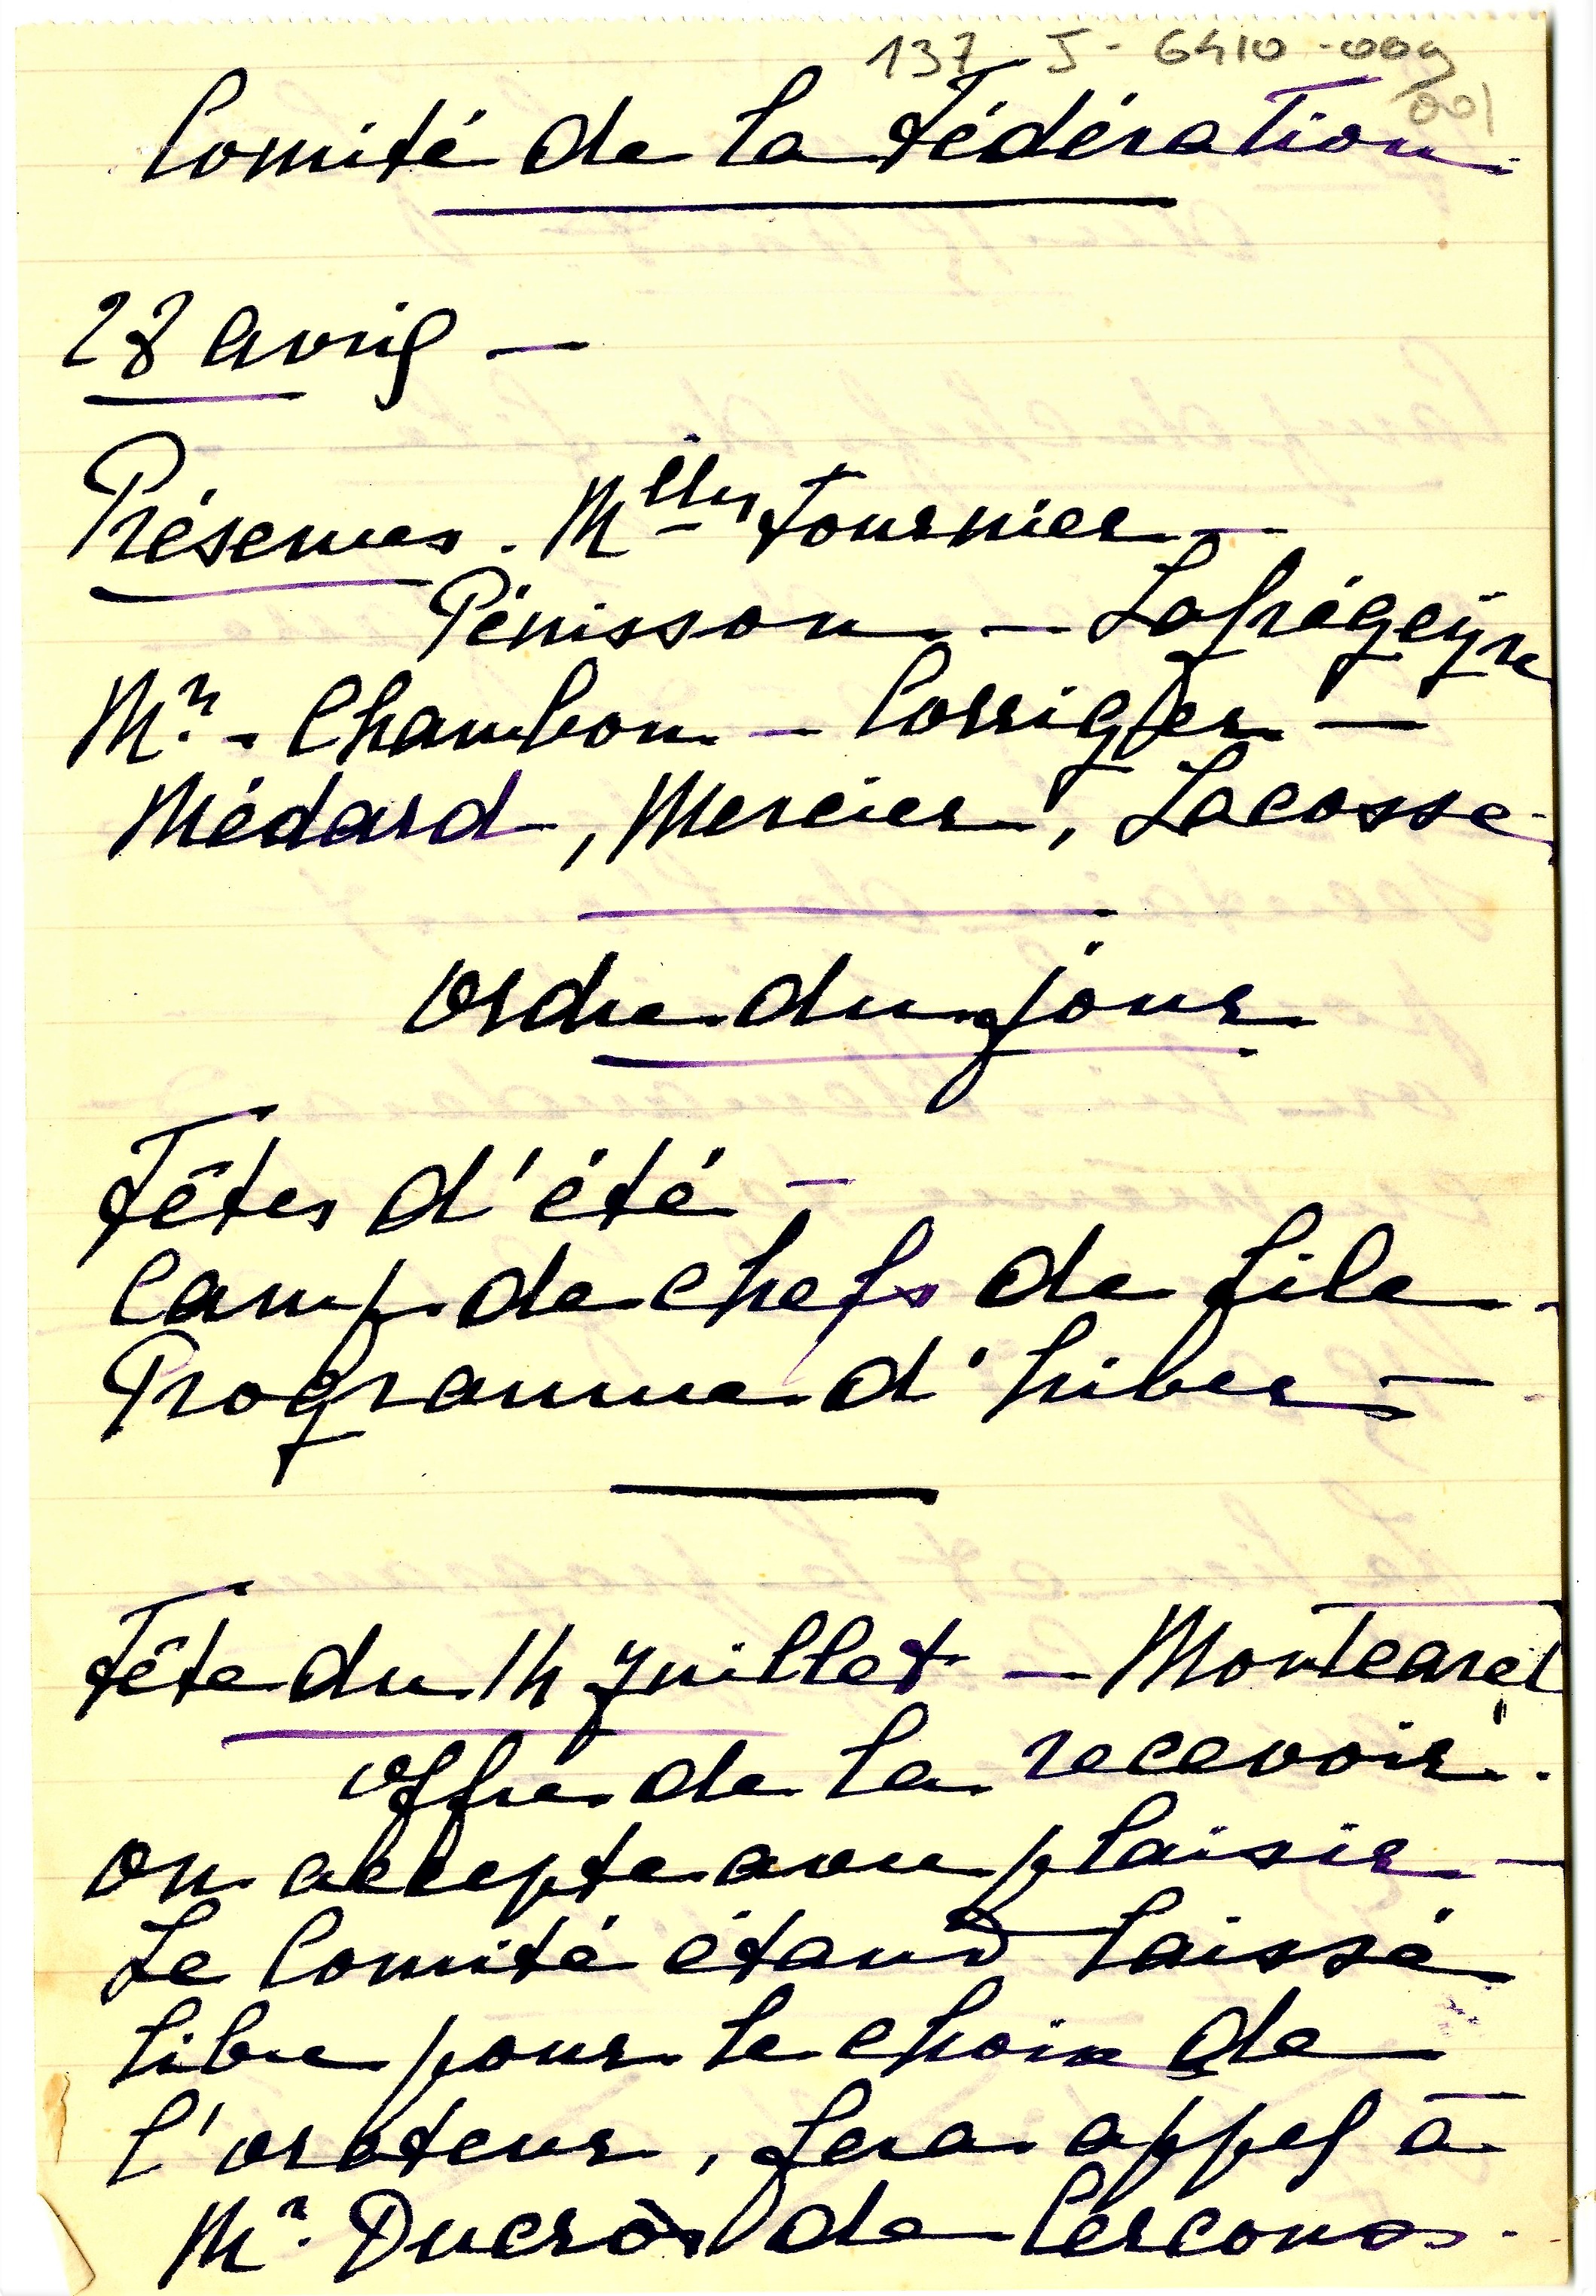 137 J - 6410 - 009
001
Comité de la Fédération
28 avril —
Présences. Mlles Fournier —
Pénisson — Lafrégeyre
Mr. - Chambon — Corrigler —
Médard, Mercier, Lacosse
Ordre du jour
Fêtes d'été —
Camp de chefs de file -
Programme d'hiver —
Fête du 14 Juillet — Montcaret
offre de la recevoir.
On accepte avec plaisir —
Le Comité étant laissé
libre pour le choix de
l'orateur, fera appel à
Mr. Ducros de